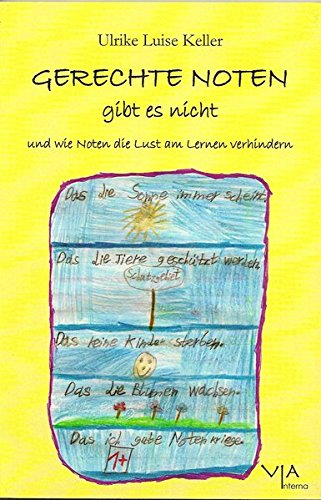 Ulrike Luise Keller
GERECHTE NOTEN
gibt es nicht
und wie Noten die Lust am Lernen verhindern
Das die Sonne immer scheint.
Das die Tiere geschützt werden.
Schutzgebiet
Das keine Kinder sterben.
Das die Blumen wachsen.
Das ich gute Noten kriege.
1+
VIA
interna